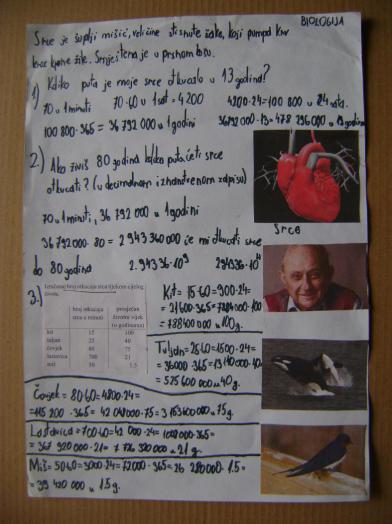 BIOLOGIJA
Srce je šuplji mišić, veličine stisnute šake, koji pumpa krv
kroz krvne žile. Smješteno je u prsnom košu.
1) Koliko puta je moje srce otkucalo u 13 godina?
70 u 1 minuti 70·60 u 1 sat = 4200 4200·24=100 800 u 24 sata.
100 800·365 = 36 792 000 u 1 godini 36792 000·13=478 296 000 u 13 godina
2.) Ako živiš 80 godina koliko puta će ti srce
otkucati? (u decimalnom i znanstvenom zapisu)
70 u 1 minuti, 36 792 000 u 1 godini
36 792 000·80 = 2 943 360 000 će mi otkucati srce
do 80 godina 2.94336·10⁹
Srce
3.) Izračunaj broj otkucaja srca tijekom cijelog
života.
broj otkucaja srca u minuti prosječan životni vijek (u godinama)
kit 15 100
tuljan 25 40
čovjek 80 75
lastavica 700 21
miš 50 1.5
Kit = 15·60=900·24=
= 21600·365=
= 788400 000 u 100g.
Tuljan=25·60=1500·24=
= 36000·365=13 140 000·40=
= 525 600 000 u 40g.
Čovjek = 80·60=4800·24=
=115 200 ·365=
u 75g.
Lastavica =700·60=42 000·24=
= 367 920 000·21=
u 21g.
Miš= 50·60=3000·24=72000·365=26 280000·1.5=
= 39 420 000 u 1.5g.